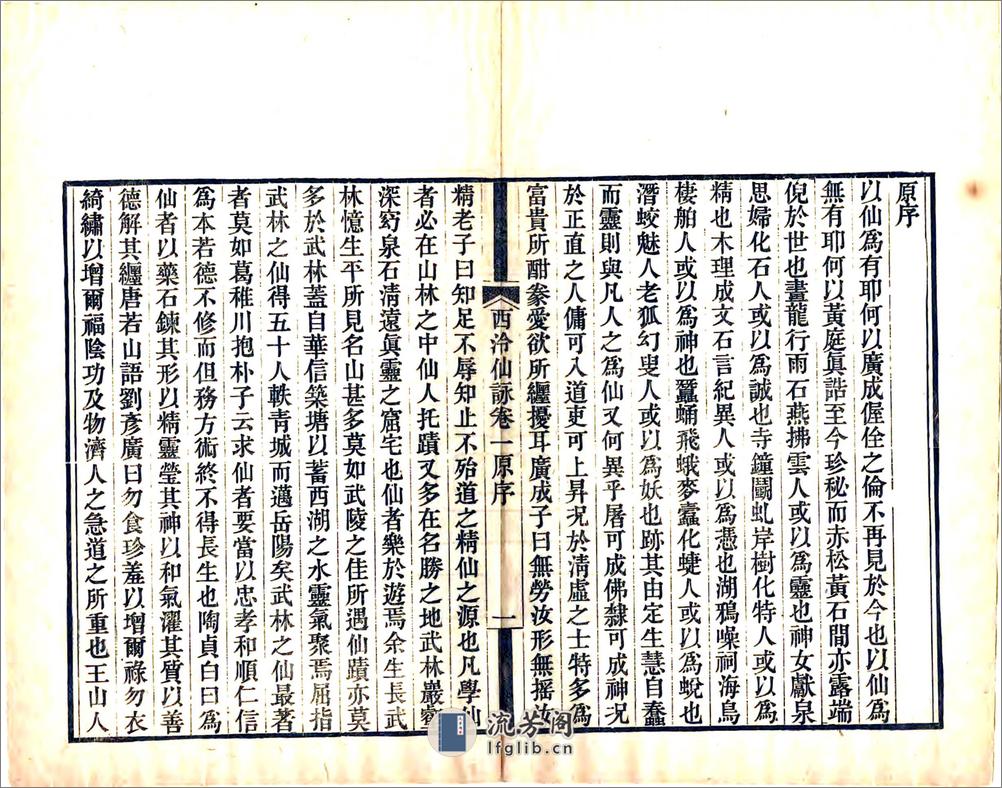 原序
以仙爲有耶何以廣成偓佺之倫不再見於今也以仙爲
無有耶何以黃庭眞誥至今珍秘而赤松黃石間亦露端
倪於世也畫龍行雨石燕拂雲人或以爲靈也神女獻泉
思婦化石人或以爲誠也寺鐘鬭虬岸樹化特人或以爲
精也木理成文石言紀異人或以爲憑也湖鴉噪祠海鳥
棲舶人或以爲神也蠶蛹飛蛾麥蠹化蜨人或以爲蛻也
潛蛟魅人老狐幻叟人或以爲妖也跡其由定生慧自蠢
而靈則與凡人之爲仙又何異乎屠可成佛隸可成神况
於正直之人傭可入道吏可上昇况於淸虛之士特多爲
富貴所酣豢愛欲所纏擾耳廣成子曰無勞汝形無搖汝
西泠仙詠卷一原序
一
精老子曰知足不辱知止不殆道之精仙之源也凡學仙
者必在山林之中仙人托蹟又多在名勝之地武林巖壑
深窈泉石淸遠眞靈之窟宅也仙者樂於遊焉余生長武
林憶生平所見名山甚多莫如武陵之佳所遇仙蹟亦莫
多於武林蓋自華信築塘以蓄西湖之水靈氣聚焉屈指
武林之仙得五十人軼靑城而邁岳陽矣武林之仙最著
者莫如葛稚川抱朴子云求仙者要當以忠孝和順仁信
爲本若德不修而但務方術終不得長生也陶貞白曰爲
仙者以藥石鍊其形以精靈瑩其神以和氣濯其質以善
德解其纏唐若山語劉彥廣曰勿食珍羞以增爾祿勿衣
綺繡以增爾福陰功及物濟人之急道之所重也王山人
流芳阁
lfglib.cn